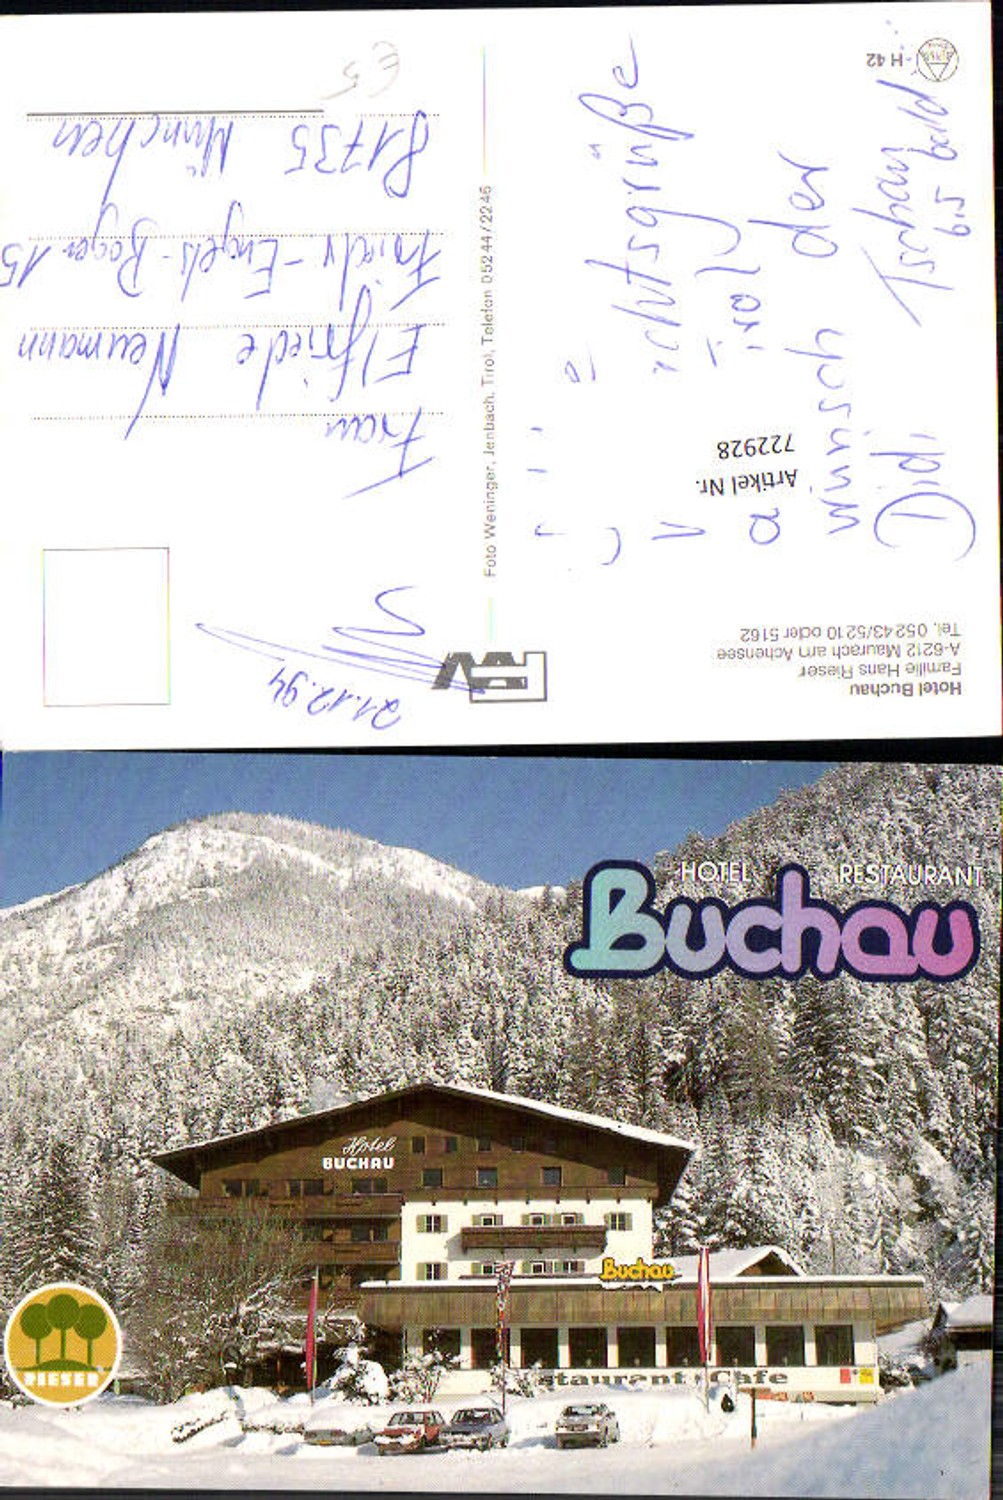 Hotel Buchau
Familie Hans Rieser
A-6212 Maurach am Achensee
Tel. 05243/5210 oder 5162
21.12.94
Artikel Nr.
722928
wünsch der
Didi
Tschau
bald
Foto Weninger, Jenbach, Tirol, Telefon 05244/2246
Frau
Elfriede Neumann
81735 München
H 42
HOTEL RESTAURANT
Buchau
Hotel
BUCHAU
Buchau
staurant Cafe
RIESER